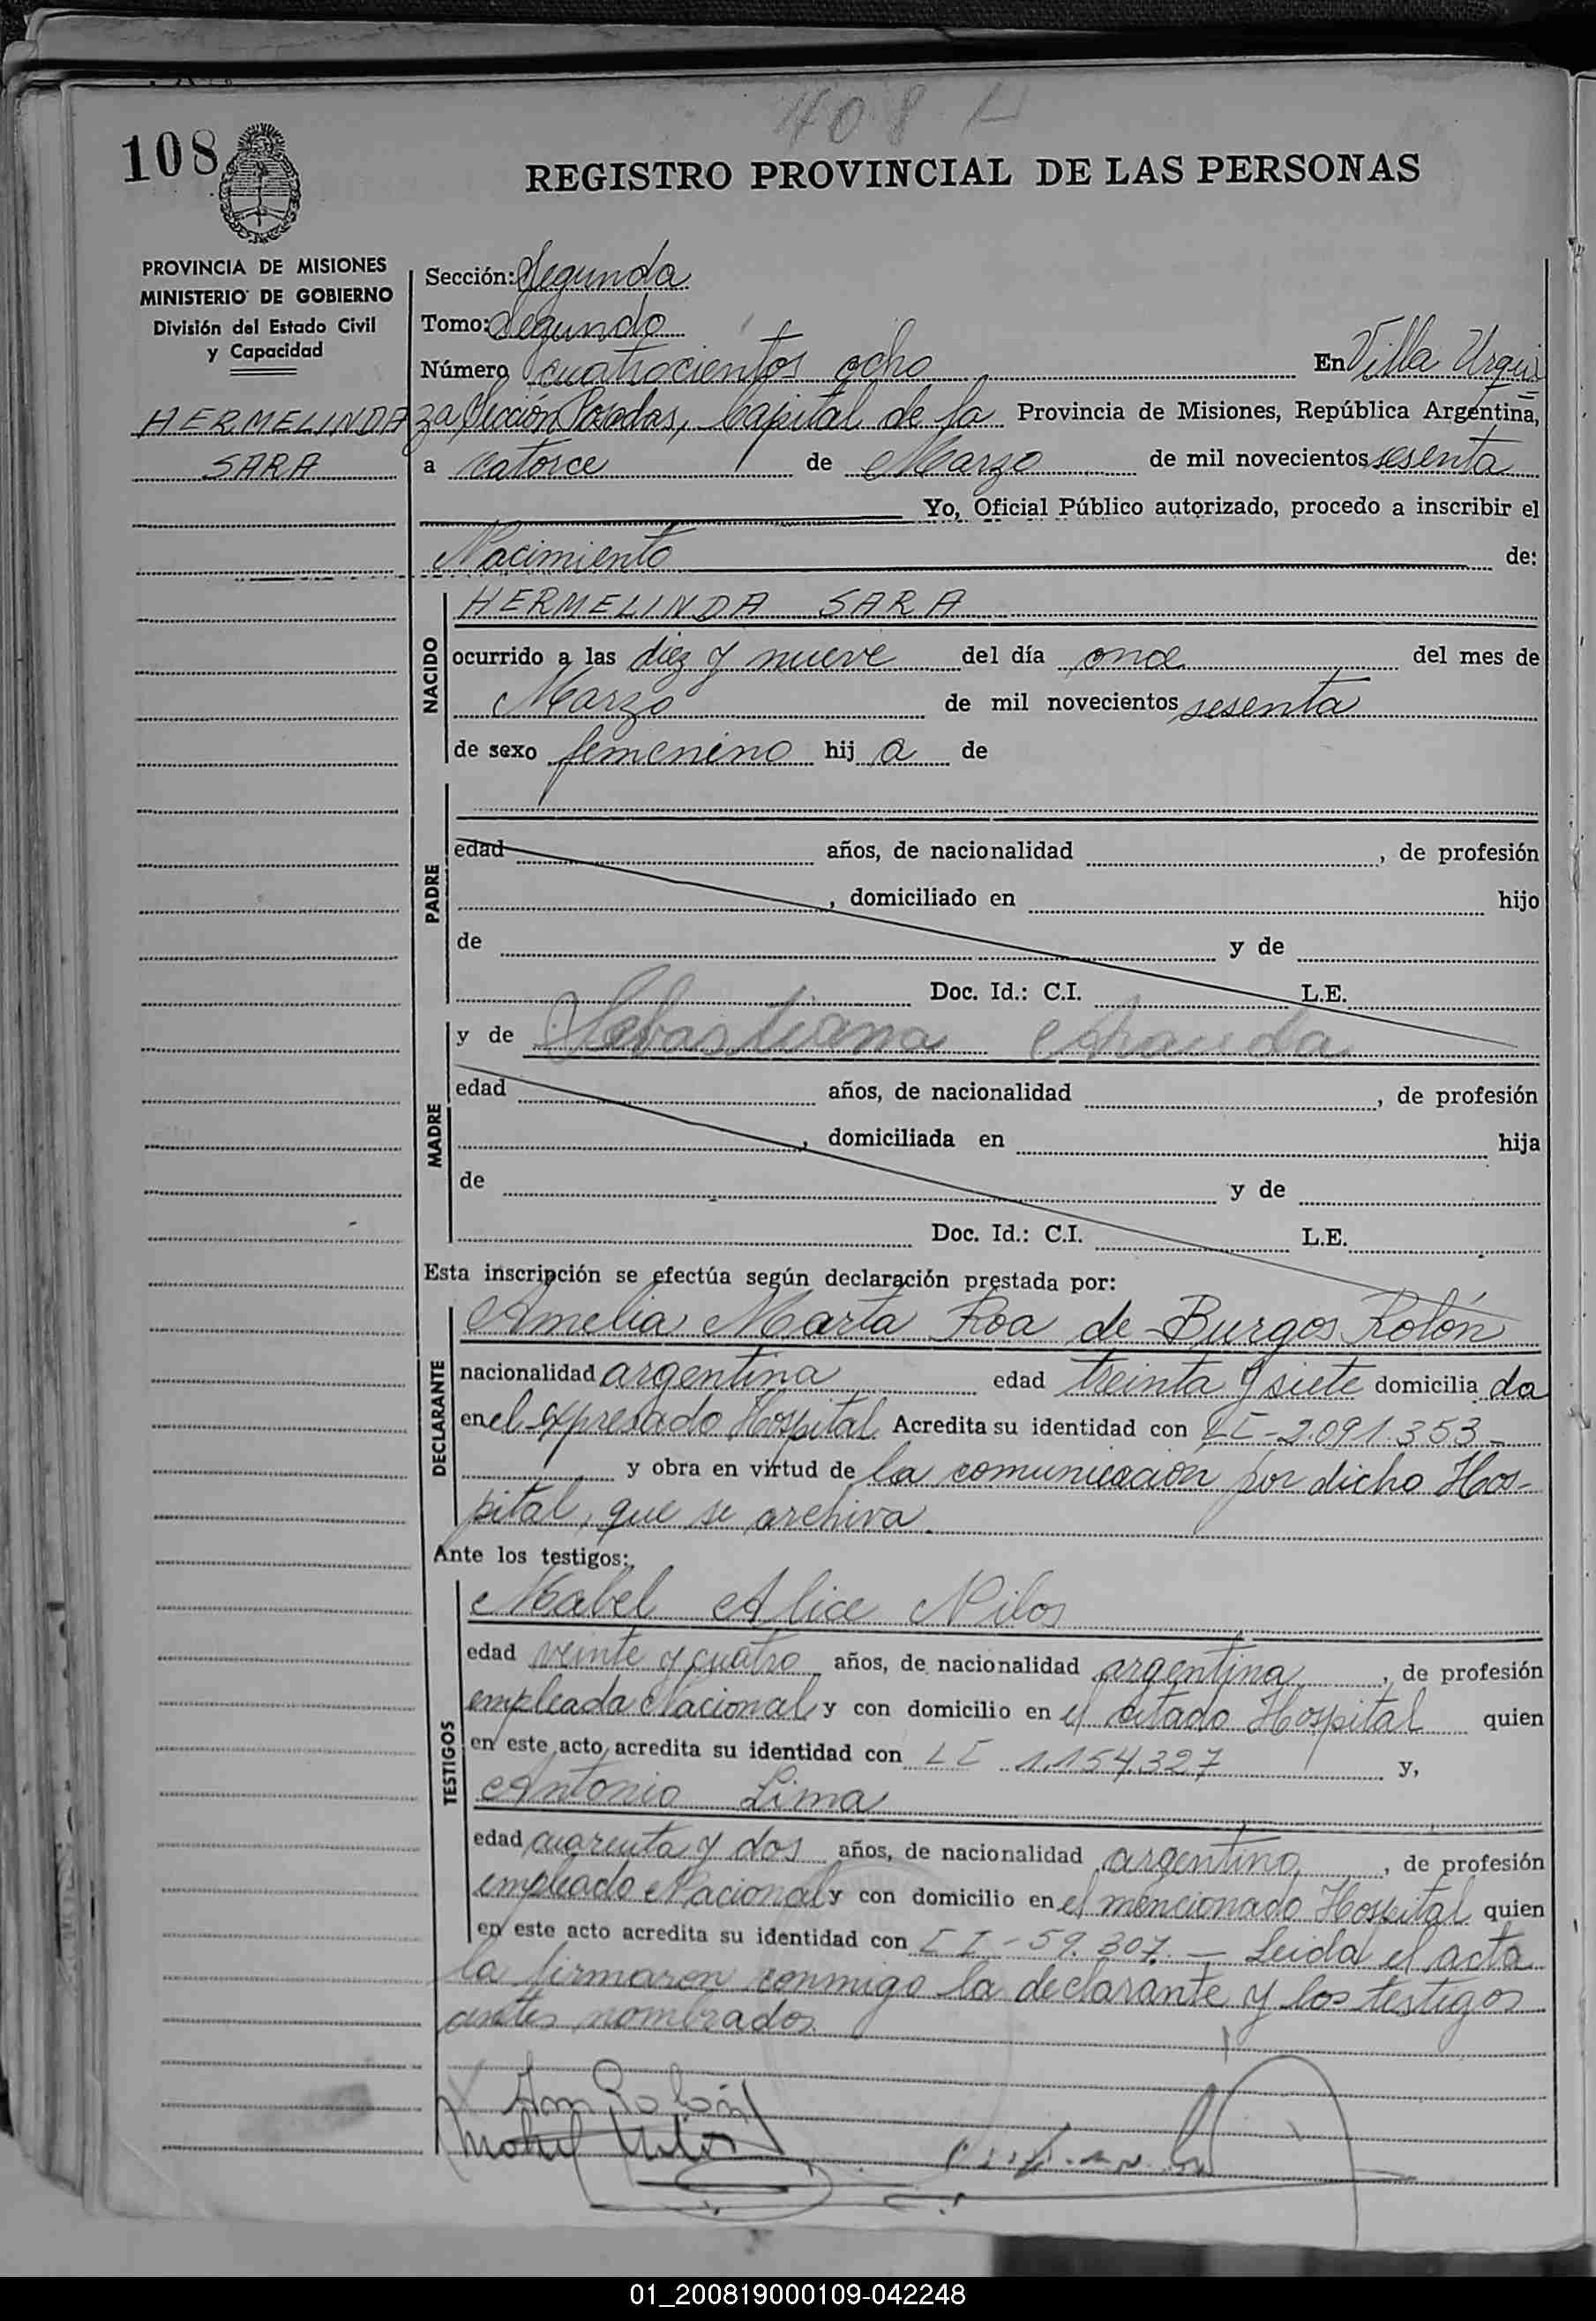 408 H
108
REGISTRO PROVINCIAL DE LAS PERSONAS
PROVINCIA DE MISIONES
MINISTERIO DE GOBIERNO
División del Estado Civil
y Capacidad
HERMELINDA
SARA
Sección: Segunda
Tomo: Segundo
Número cuatrocientos ocho En Villa Urqui
za Sección Posadas, Capital de la Provincia de Misiones, República Argentina,
a catorce de Marzo de mil novecientos sesenta
Yo, Oficial Público autorizado, procedo a inscribir el
Nacimiento de:
NACIDO
HERMELINDA SARA
ocurrido a las diez y nueve del día once del mes de
Marzo de mil novecientos sesenta
de sexo femenino hij a de
PADRE
edad años, de nacionalidad , de profesión
, domiciliado en hijo
de y de
Doc. Id.: C.I. L.E.
MADRE
y de Sebastiana Aranda
edad años, de nacionalidad , de profesión
, domiciliada en hija
de y de
Doc. Id.: C.I. L.E.
Esta inscripción se efectúa según declaración prestada por:
DECLARANTE
Amelia Marta Roa de Burgos Rolón
nacionalidad argentina edad treinta y siete domicilia da
en el expresado Hospital Acredita su identidad con LC-2.091.353-
y obra en virtud de la comunicación por dicho Hos-
pital, que se archiva.
Ante los testigos:
TESTIGOS
Mabel Alice Nilos
edad veinte y cuatro años, de nacionalidad argentina, de profesión
empleada Nacional y con domicilio en el citado Hospital quien
en este acto acredita su identidad con LC 1.154.327 y,
Antonio Lima
edad cuarenta y dos años, de nacionalidad argentino, de profesión
empleado Nacional y con domicilio en el mencionado Hospital quien
en este acto acredita su identidad con CI-59.307.- Leida el acta
la firmaron conmigo la declarante y los testigos
antes nombrados.
01_200819000109-042248